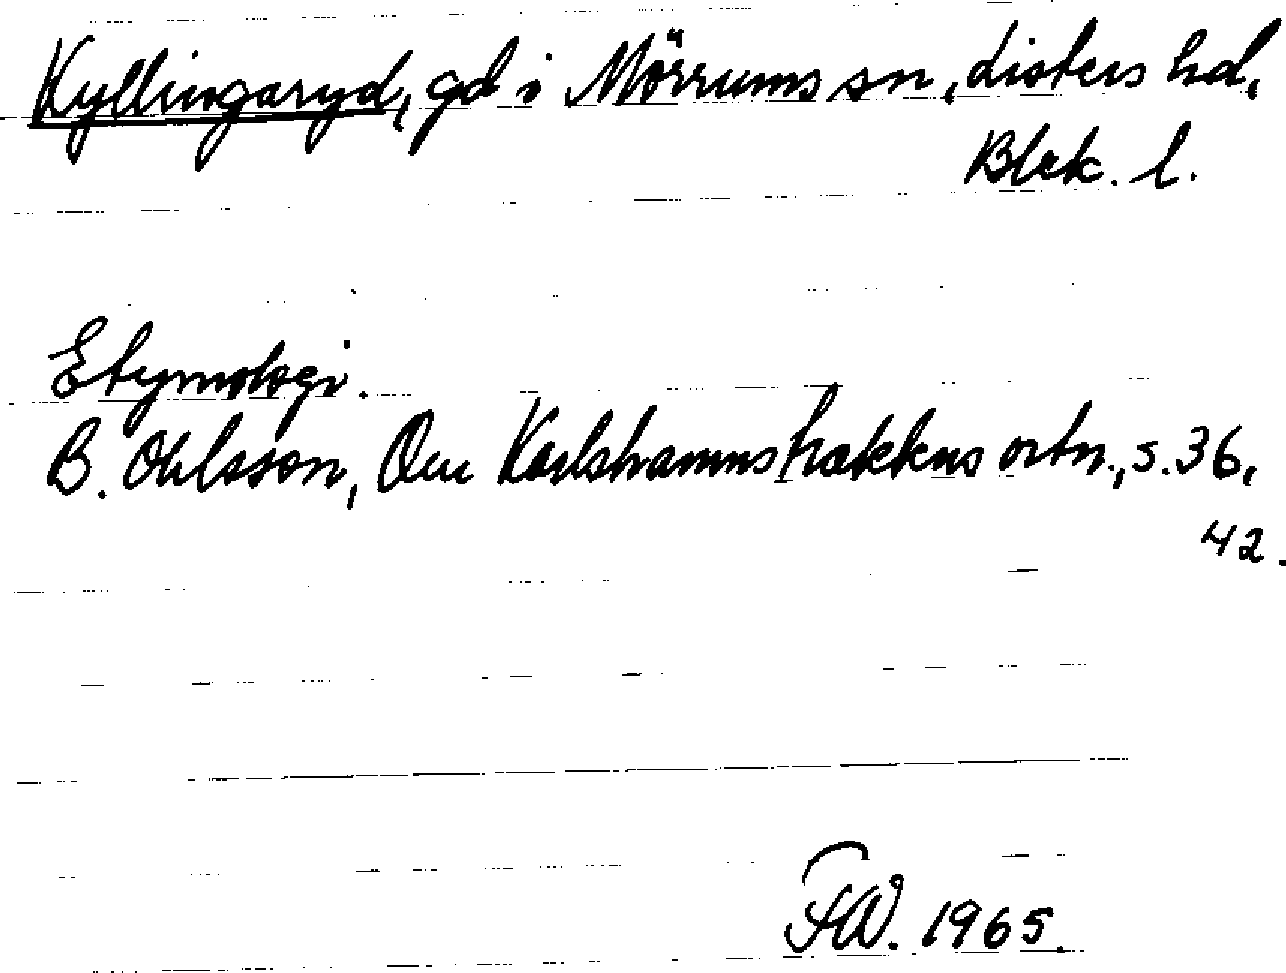 Kyllingaryd, gd i Mörrums sn, Listers hd,
Blek. l.
Etymologi.
B. Ohlsson, Om Karlshamnstraktens ortn., s. 36,
42.
FW. 1965.